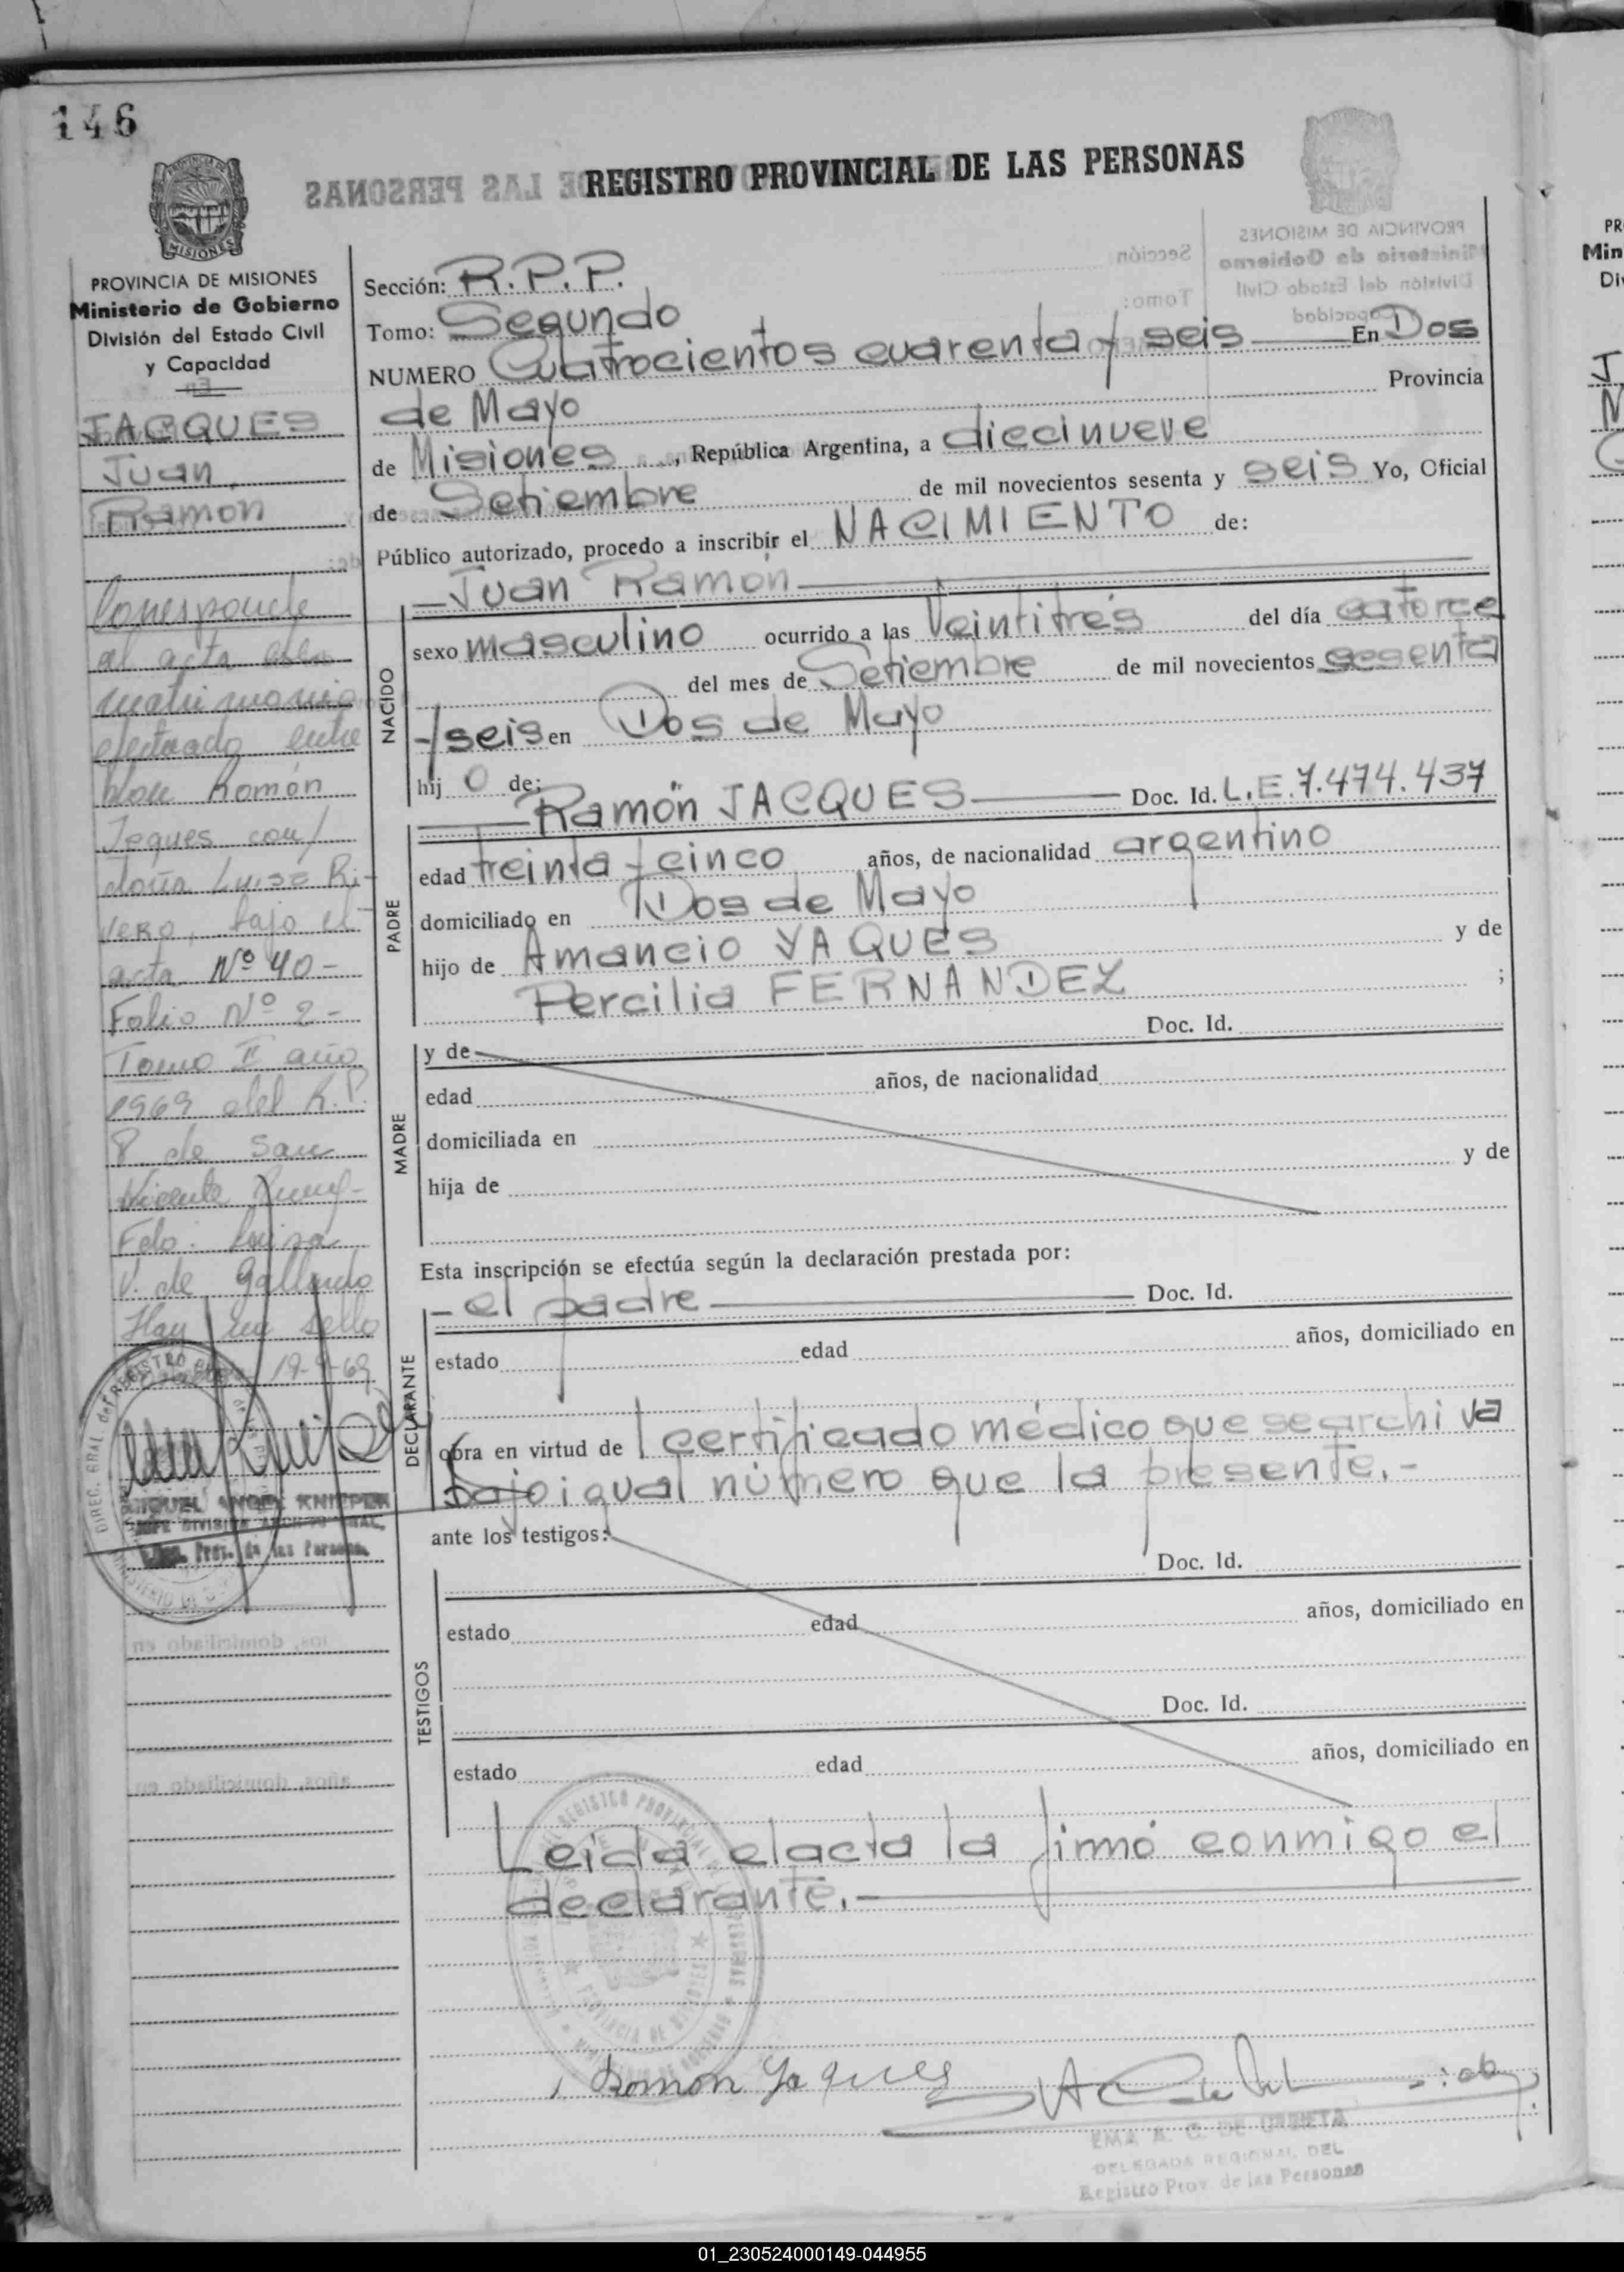 146
REGISTRO PROVINCIAL DE LAS PERSONAS
MISIONES
PROVINCIA DE MISIONES
Ministerio de Gobierno
División del Estado Civil
y Capacidad
JACQUES
Juan
Ramon
Corresponde
al acta de
matrimonio
efectuado entre
don Román
Jeques con/
doña Luisa Ri-
vero, bajo el
acta Nº 40-
Folio Nº 2-
Tomo II año
1969 del R.P.
P. de San
Vicente
Fdo. Luisa
V. de Gallardo
Hay un sello
19-9-69
MIGUEL ANGEL KNIPPER
JEFE DIVISION ARCHIVO GRAL.
Prov. de las Personas
Sección: R.P.P.
Tomo: Segundo
NUMERO Cuatrocientos cuarenta y seis En Dos
de Mayo Provincia
de Misiones, República Argentina, a diecinueve
de Setiembre de mil novecientos sesenta y seis Yo, Oficial
Público autorizado, procedo a inscribir el NACIMIENTO de:
Juan Ramón
NACIDO
sexo masculino ocurrido a las Veintitrés del día catorce
del mes de Setiembre de mil novecientos sesenta
y seis en Dos de Mayo
hij o de:
Ramón JACQUES Doc. Id. L.E. 7.474.437
PADRE
edad treinta y cinco años, de nacionalidad argentino
domiciliado en Dos de Mayo
hijo de Amancio YAQUES y de
Percilia FERNANDEZ ;
y de Doc. Id.
MADRE
edad años, de nacionalidad
domiciliada en
hija de y de
Esta inscripción se efectúa según la declaración prestada por:
- el padre Doc. Id.
DECLARANTE
estado edad años, domiciliado en
obra en virtud de l certificado médico que se archiva
bajo igual número que la presente.-
ante los testigos:
Doc. Id.
TESTIGOS
estado edad años, domiciliado en
Doc. Id.
estado edad años, domiciliado en
Leída el acta la firmó conmigo el
declarante.-
Ramón Yaques
EMA A. C. DE URRIETA
DELEGADA REGIONAL DEL
Registro Prov. de las Personas
01_230524000149-044955